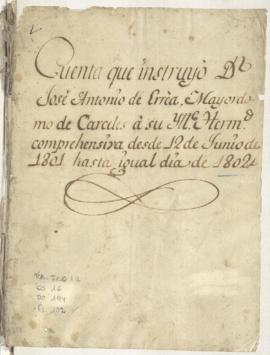 Cuenta que instruyò Dn
José Antonio de Errèa, Mayordo-
mo de Carceles à su Yle. Hermd.
comprehensiva desde 12 de Junio de
1801 hasta igual dia de 1802
CO 16
DO 194